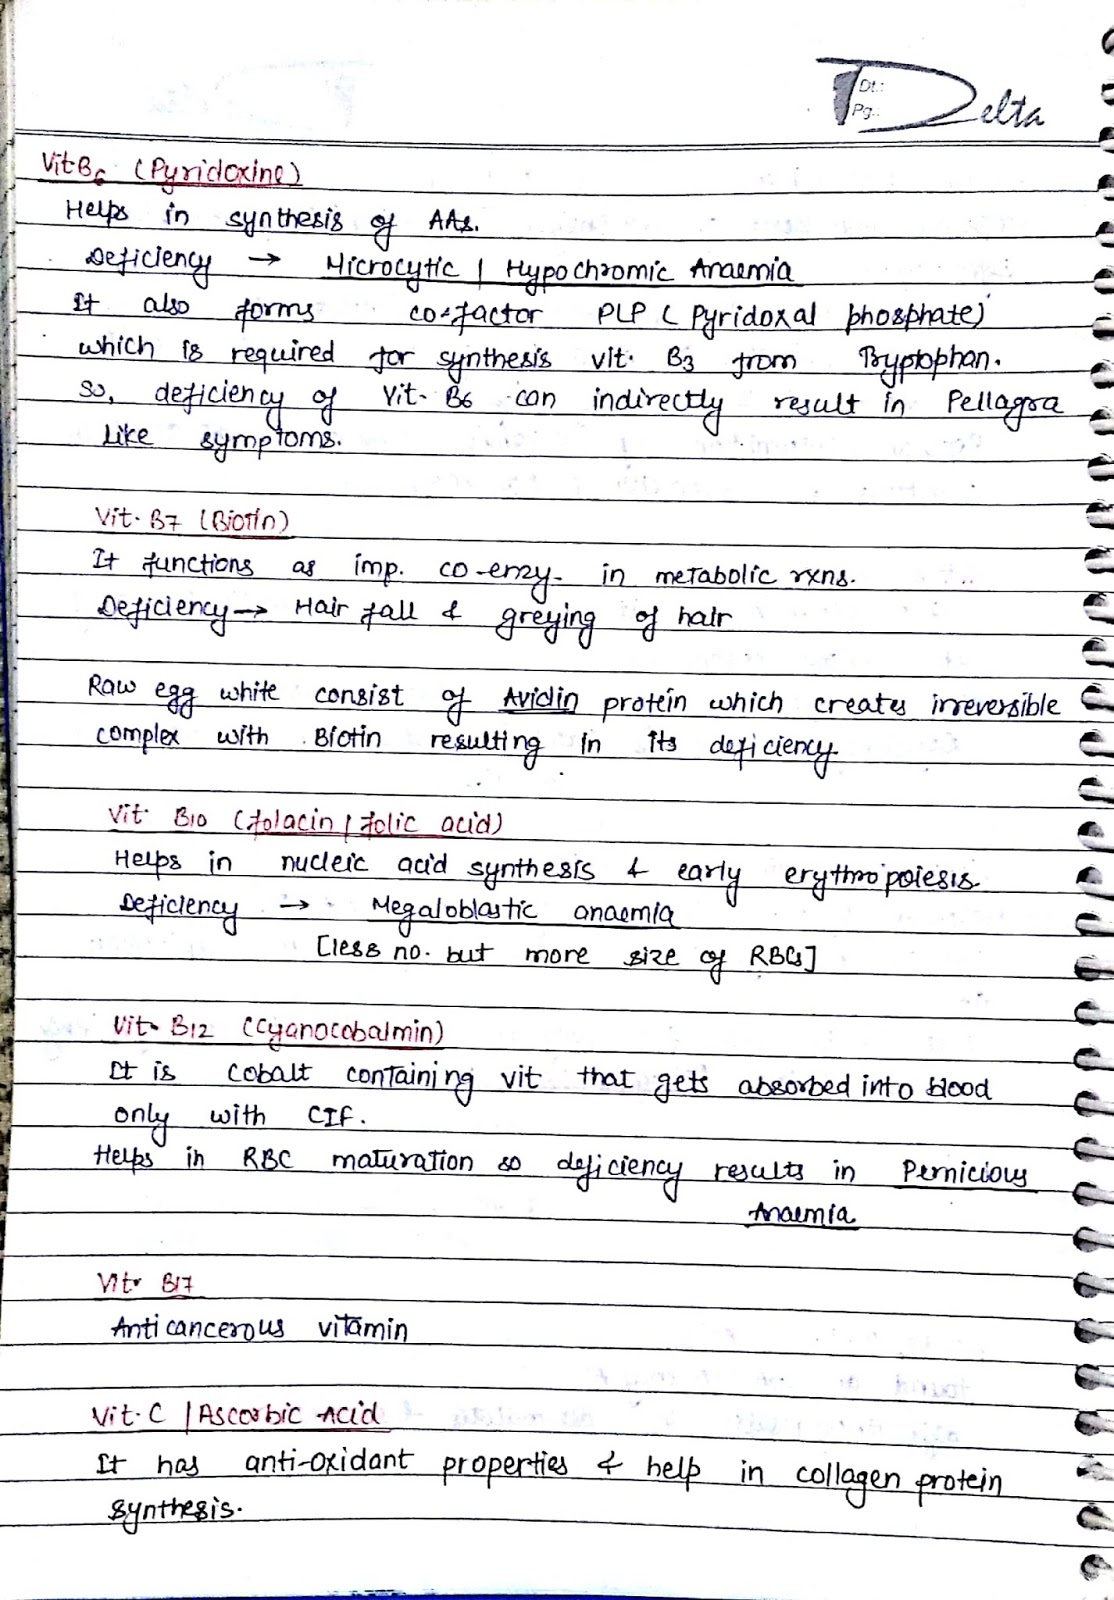 Dt.:
Pg.:
Delta
Vit B6 (Pyridoxine)
Helps in synthesis of AAs.
Deficiency → Microcytic | Hypochromic Anaemia
It also forms co-factor PLP (Pyridoxal phosphate)
which is required for synthesis vit. B3 from Tryptophan.
so, deficiency of Vit. B6 can indirectly result in Pellagra
Like symptoms.
Vit. B7 (Biotin)
It functions as imp. co-enzy. in metabolic rxns.
Deficiency → Hair fall & greying of hair
Raw egg white consist of Avidin protein which creates irreversible
complex with Biotin resulting in its deficiency.
Vit. B10 (folacin | folic acid)
Helps in nucleic acid synthesis & early erythropoiesis.
Deficiency → Megaloblastic anaemia
[less no. but more size of RBCs]
Vit. B12 (Cyanocobalmin)
It is cobalt containing vit that gets absorbed into blood
only with CIF.
Helps in RBC maturation so deficiency results in Pernicious
Anaemia
Vit. B17
Anticancerous vitamin
Vit. C | Ascorbic Acid
It has anti-oxidant properties & help in collagen protein
synthesis.